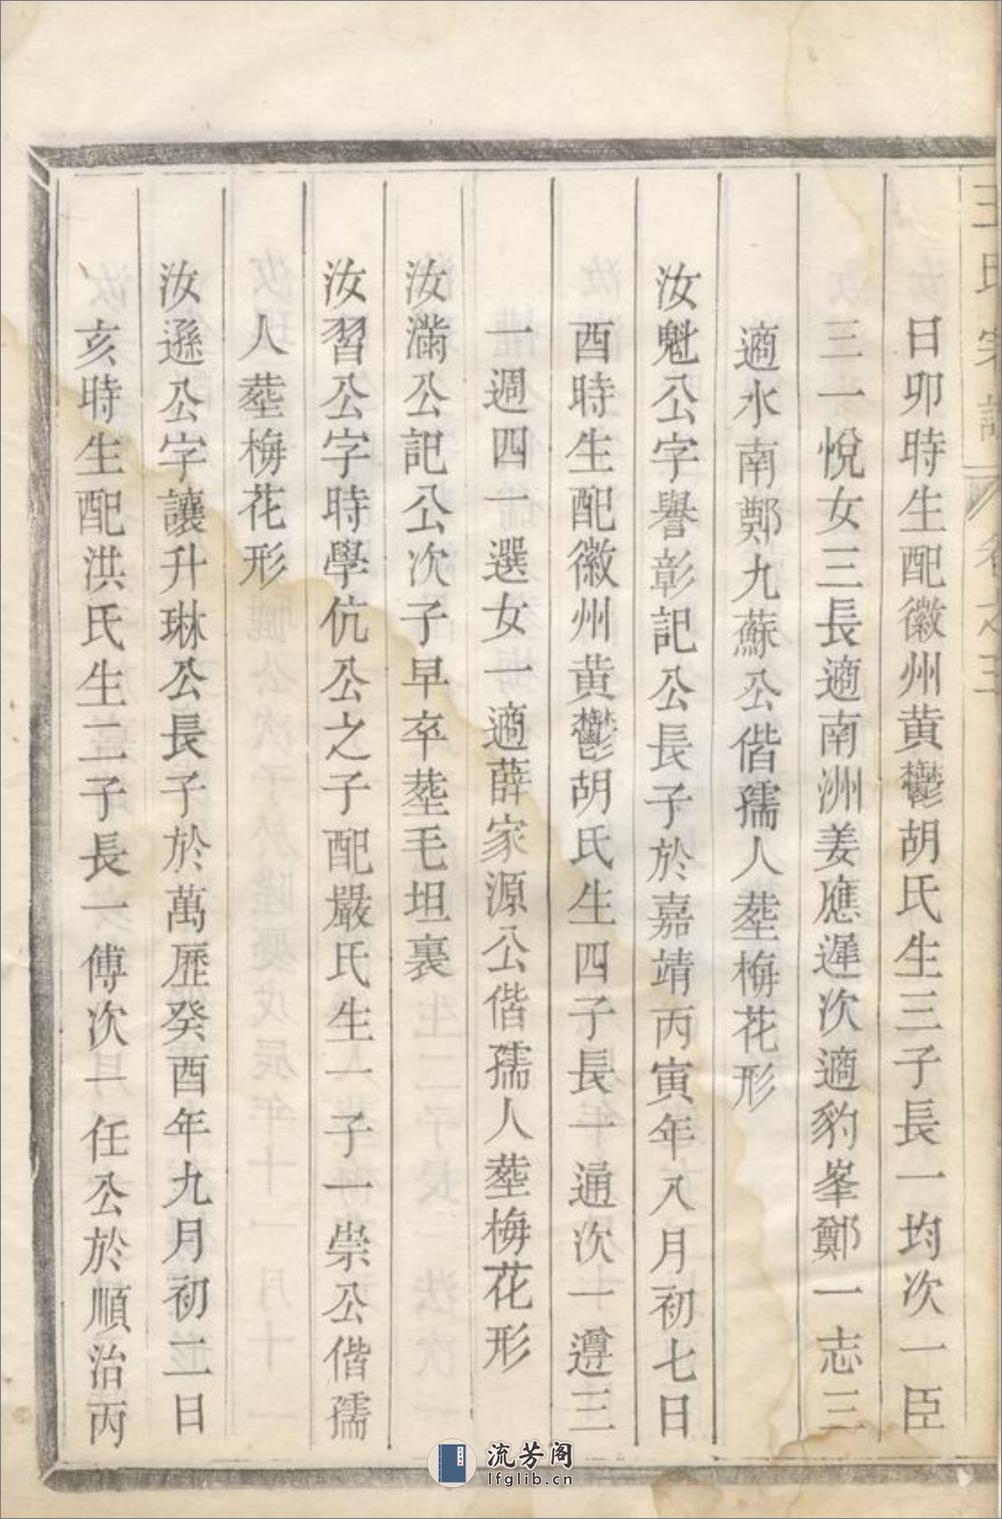 王氏宗譜 卷之五
日卯時生配徽州黄鬱胡氏生三子長一均次一臣
三一悅女三長適南洲姜應遲次適豹峯鄭一志三
適水南鄭九蘇公偕孺人塟梅花形
汝魁公字譽彰記公長子於嘉靖丙寅年八月初七日
酉時生配徽州黄鬱胡氏生四子長一通次一遵三
一週四一選女一適薛家源公偕孺人塟梅花形
汝滿公記公次子早卒塟毛坦裏
汝習公字時學伉公之子配嚴氏生一子一崇公偕孺
人塟梅花形
汝遜公字讓升琳公長子於萬歷癸酉年九月初二日
亥時生配洪氏生二子長一傅次一任公於順治丙
流芳阁
lfglib.cn